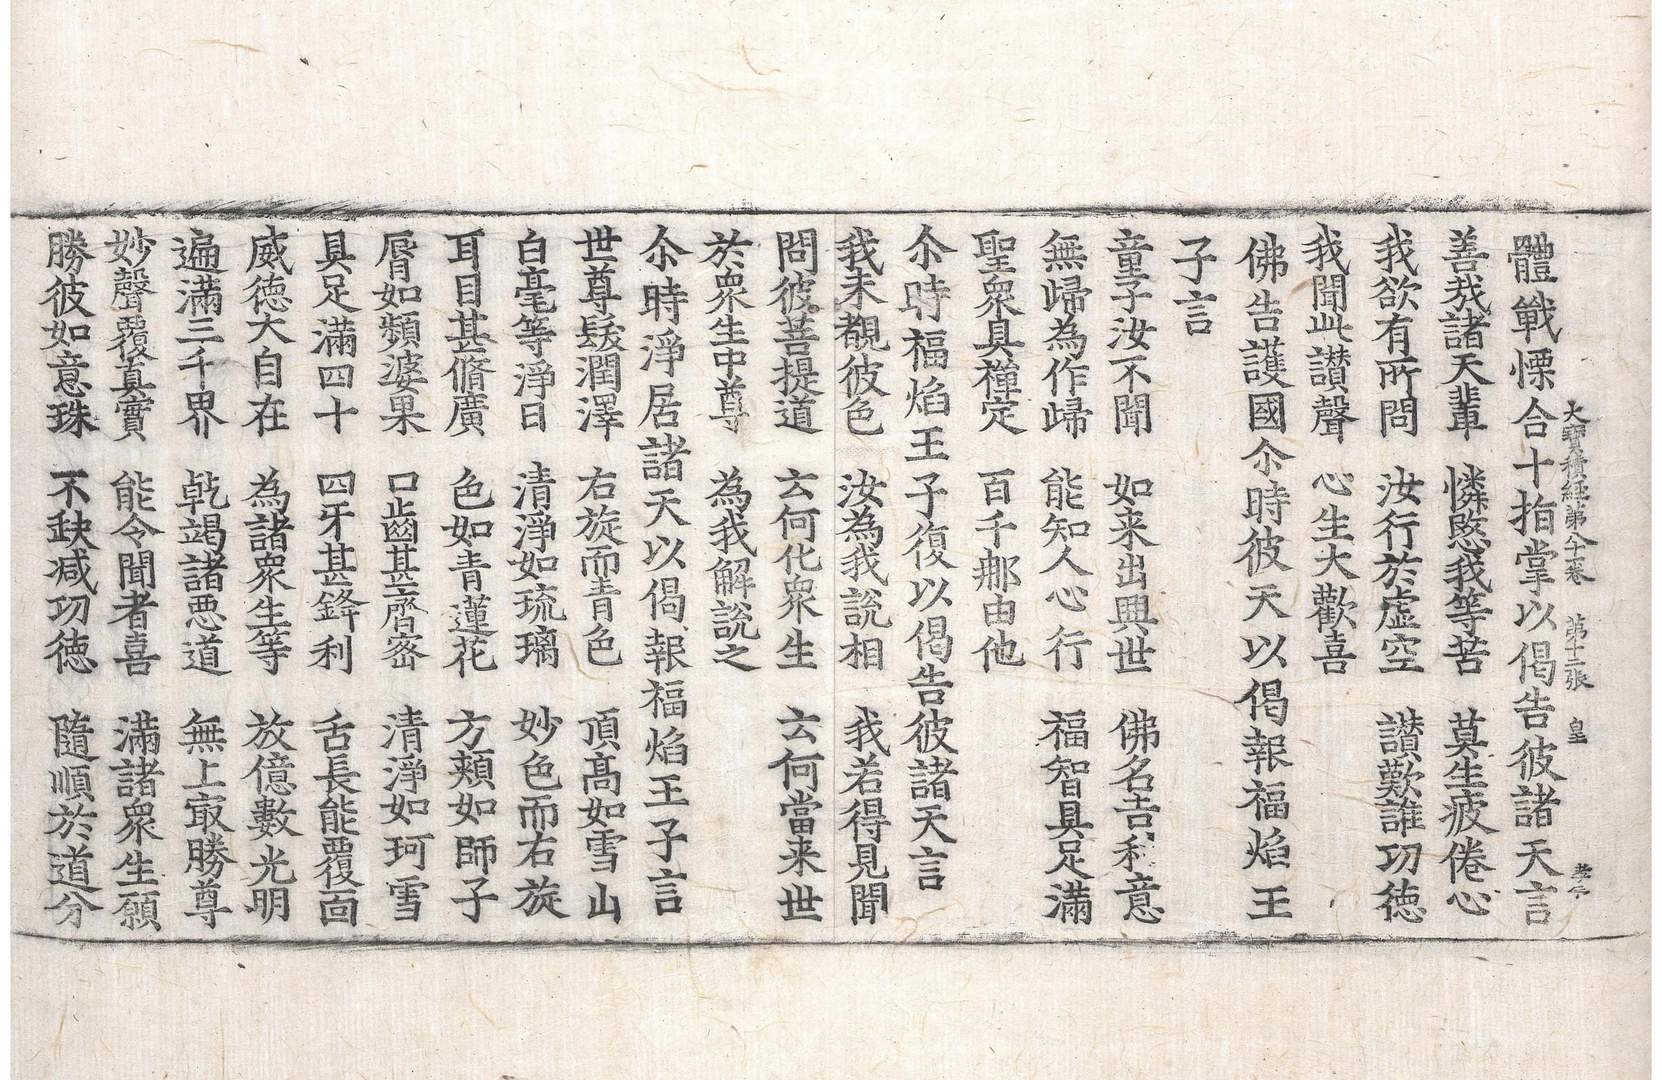 大寶積經第八十卷　第十二張　皇
體戰慄合十指掌以偈告彼諸天言
善哉諸天輩　憐愍我等苦　莫生疲倦心
我欲有所問　汝行於虛空　讃歎誰功徳
我聞此讃聲　心生大歡喜
佛告護國尒時彼天以偈報福焰王
子言
童子汝不聞　如来出興世　佛名吉利意
無歸為作歸　能知人心行　福智具足滿
聖衆具禪定　百千那由他
尒時福焰王子復以偈告彼諸天言
我未覩彼色　汝為我說相　我若得見聞
問彼菩提道　云何化衆生　云何當来世
於衆生中尊　為我解說之
尒時淨居諸天以偈報福焰王子言
世尊髮潤澤　右旋而青色　頂髙如雪山
白毫等淨日　清淨如琉璃　妙色而右旋
耳目甚脩廣　色如青蓮花　方頰如師子
脣如頻婆果　口齒甚齊宻　清淨如珂雪
具足滿四十　四牙甚鋒利　舌長能覆面
威徳大自在　為諸衆生等　放億數光明
遍滿三千界　乹竭諸惡道　無上㝡勝尊
妙聲覆真實　能令聞者喜　滿諸衆生願
勝彼如意珠　不缺减功徳　隨順於道分